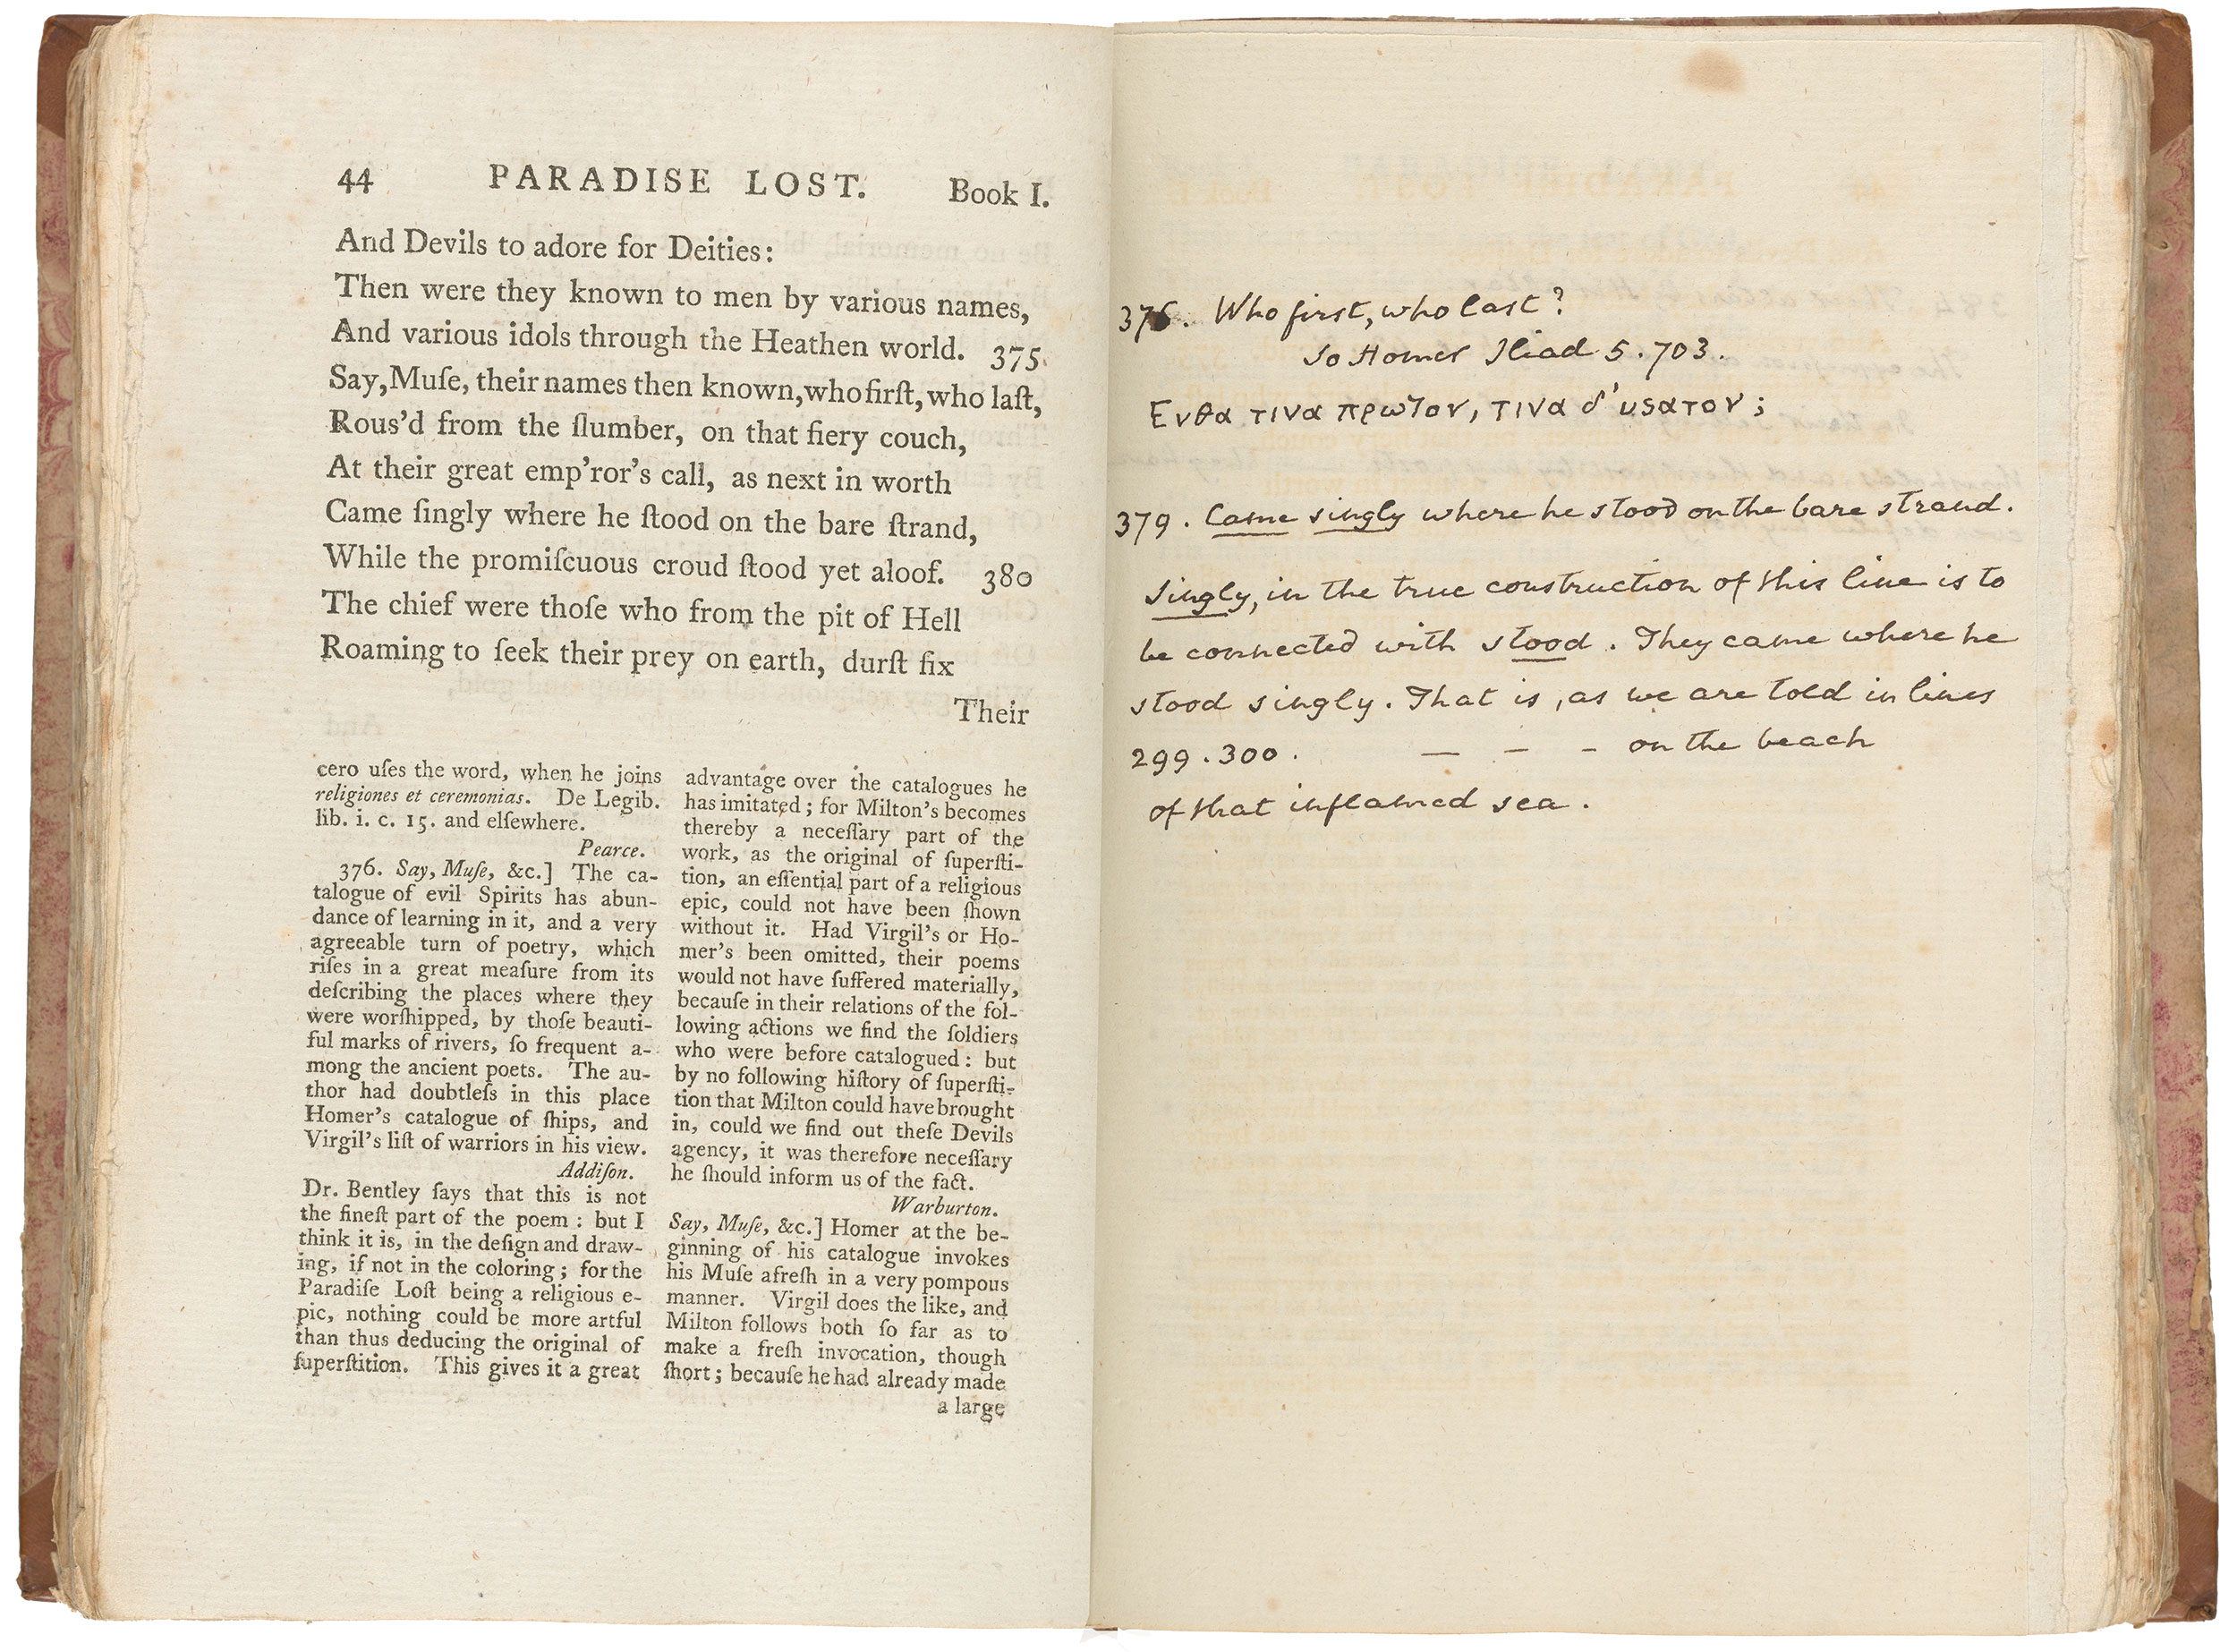 44 PARADISE LOST. Book I.
And Devils to adore for Deities:
Then were they known to men by various names,
And various idols through the Heathen world. 375
Say, Muſe, their names then known, who firſt, who laſt,
Rous'd from the ſlumber, on that fiery couch,
At their great emp'ror's call, as next in worth
Came ſingly where he ſtood on the bare ſtrand,
While the promiſcuous croud ſtood yet aloof. 380
The chief were thoſe who from the pit of Hell
Roaming to ſeek their prey on earth, durſt fix
Their
cero uſes the word, when he joins
religiones et ceremonias. De Legib.
lib. i. c. 15. and elſewhere.
Pearce.
376. Say, Muſe, &c.] The ca-
talogue of evil Spirits has abun-
dance of learning in it, and a very
agreeable turn of poetry, which
riſes in a great meaſure from its
deſcribing the places where they
were worſhipped, by thoſe beauti-
ful marks of rivers, ſo frequent a-
mong the ancient poets. The au-
thor had doubtleſs in this place
Homer's catalogue of ſhips, and
Virgil's liſt of warriors in his view.
Addiſon.
Dr. Bentley ſays that this is not
the fineſt part of the poem: but I
think it is, in the deſign and draw-
ing, if not in the coloring; for the
Paradiſe Loſt being a religious e-
pic, nothing could be more artful
than thus deducing the original of
ſuperſtition. This gives it a great
advantage over the catalogues he
has imitated; for Milton's becomes
thereby a neceſſary part of the
work, as the original of ſuperſti-
tion, an eſſential part of a religious
epic, could not have been ſhown
without it. Had Virgil's or Ho-
mer's been omitted, their poems
would not have ſuffered materially,
becauſe in their relations of the fol-
lowing actions we find the ſoldiers
who were before catalogued: but
by no following hiſtory of ſuperſti-
tion that Milton could have brought
in, could we find out theſe Devils
agency, it was therefore neceſſary
he ſhould inform us of the fact.
Warburton.
Say, Muſe, &c.] Homer at the be-
ginning of his catalogue invokes
his Muſe afreſh in a very pompous
manner. Virgil does the like, and
Milton follows both ſo far as to
make a freſh invocation, though
ſhort; becauſe he had already made
a large
376. Who first, who last?
So Homer Iliad 5.703.
Ενθα τινα πρωτον, τινα δ' υϛατον;
379. Came singly where he stood on the bare strand.
Singly, in the true construction of this line is to
be connected with stood. They came where he
stood singly. That is, as we are told in lines
299.300. — – - on the beach
of that inflamed sea.